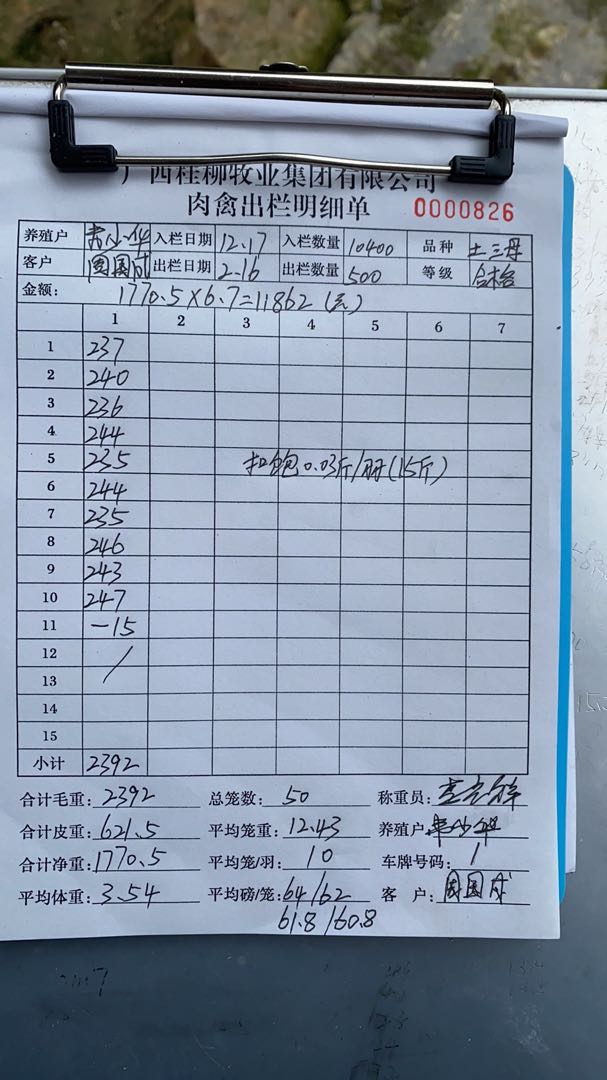 广西桂柳牧业集团有限公司
肉禽出栏明细单 0000826
养殖户 入栏日期 12.17 入栏数量 10400 品种 土三母
客户 周国成 出栏日期 2.16 出栏数量 500 等级 合格
金额: 1770.5×6.7=11862(元)
1 2 3 4 5 6 7
1 237
2 240
3 236
4 244
5 235 扣饱0.03斤/羽(15斤)
6 244
7 235
8 246
9 243
10 247
11 -15
12 /
13
14
15
小计 2392
合计毛重: 2392 总笼数: 50 称重员:
合计皮重: 621.5 平均笼重: 12.43 养殖户:
合计净重: 1770.5 平均笼/羽: 10 车牌号码: /
平均体重: 3.54 平均磅/笼: 64/62 客 户: 周国成
61.8/60.8